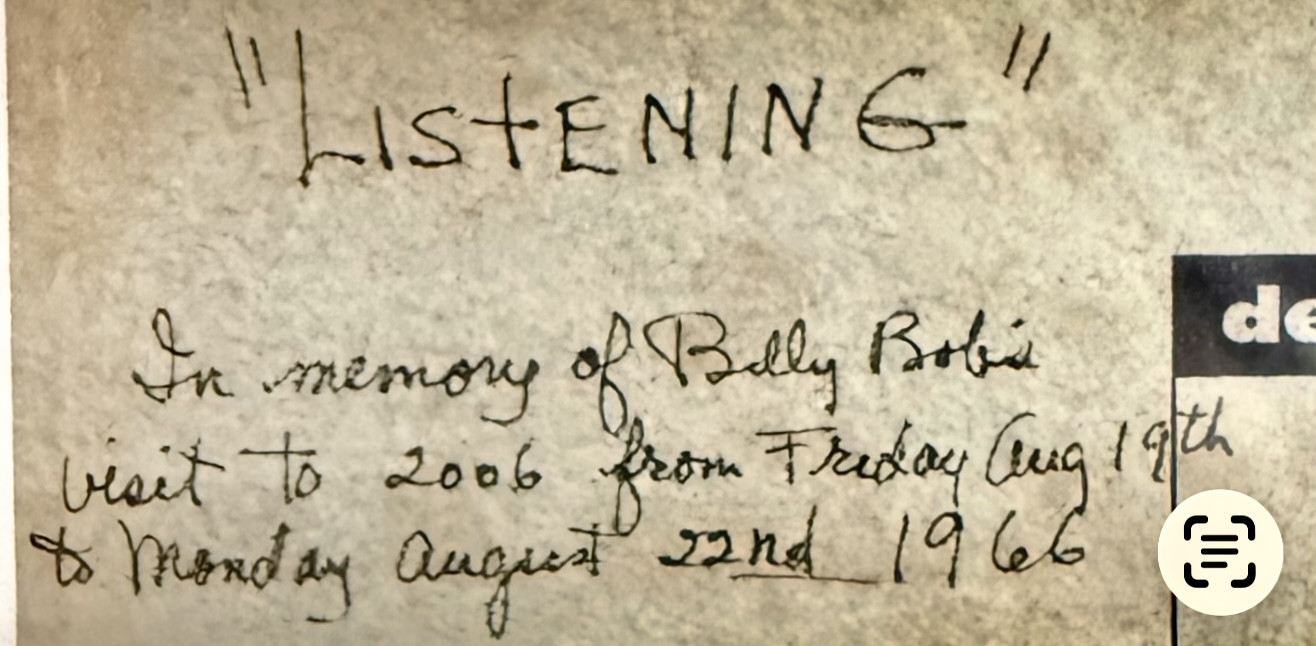 "LISTENING"
de
In memory of Billy Bob's
visit to 2006 from Friday Aug 19th
to Monday August 22nd 1966